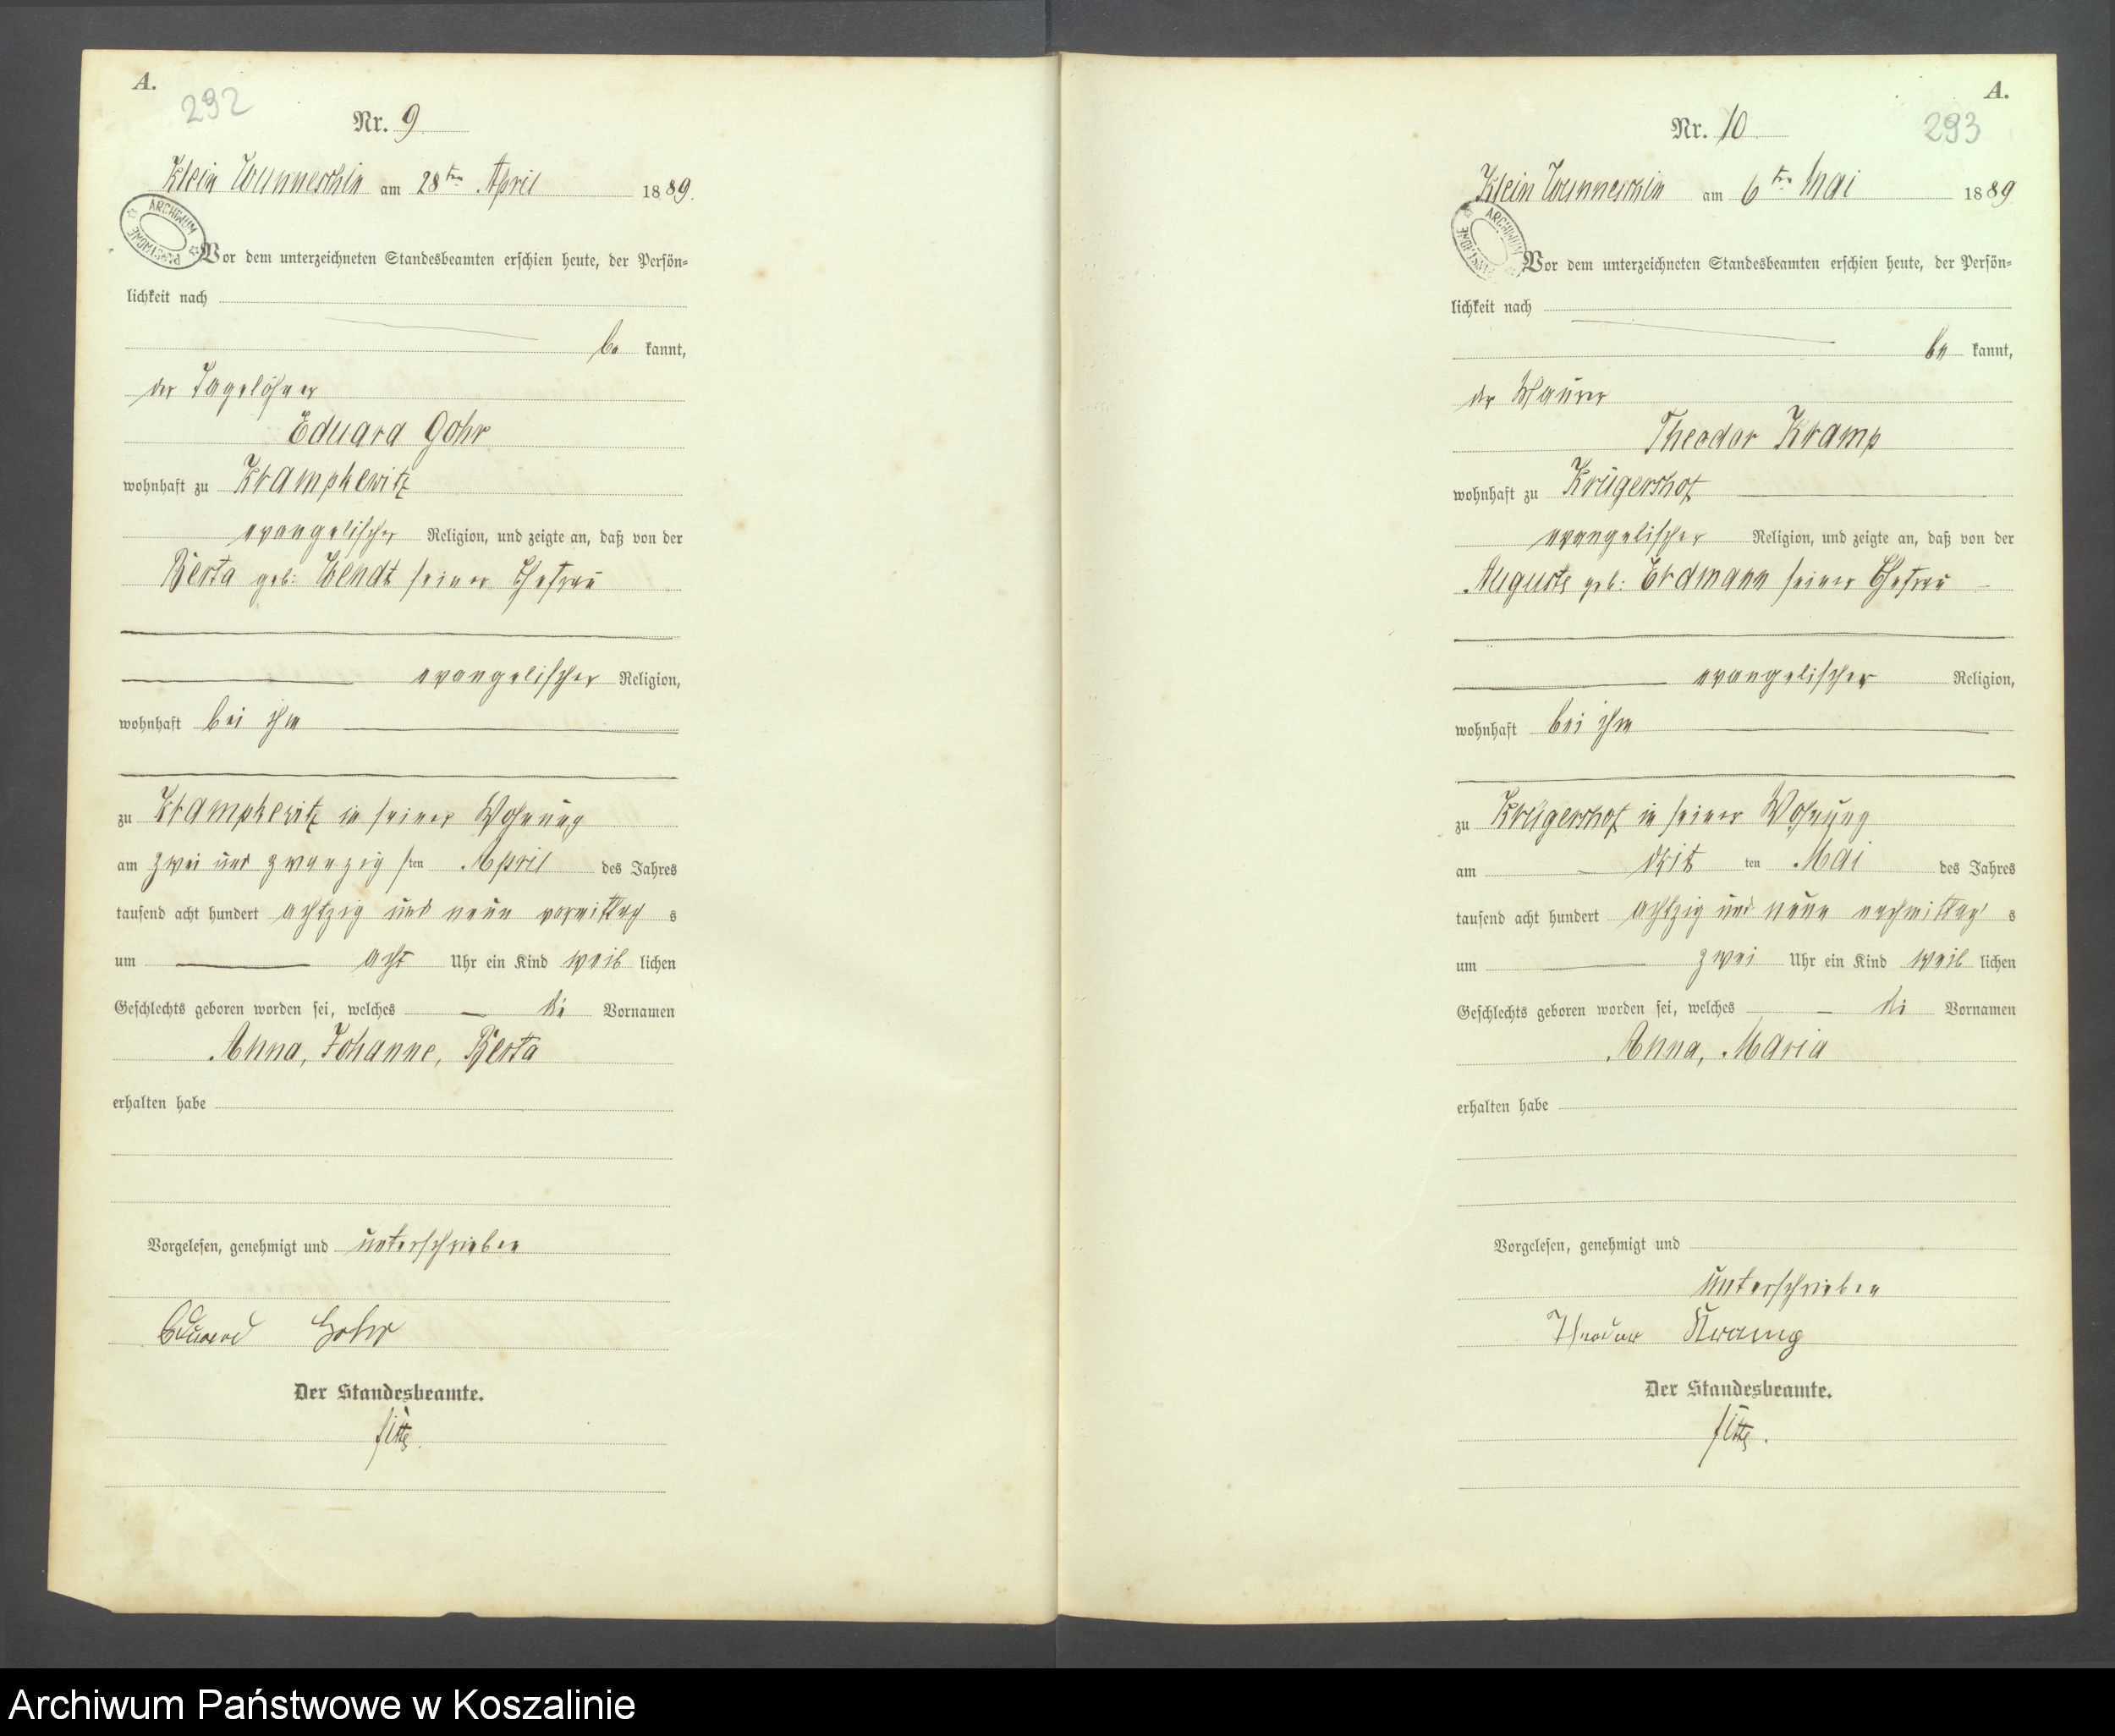 A.
292
Nr. 9
Klein Wunneschin am 28ten April 1889.
ARCHIWUM
PAŃSTWOWE
Vor dem unterzeichneten Standesbeamten erschien heute, der Persön-
lichkeit nach
be kannt,
der Tagelöhner
Eduard Gohr
wohnhaft zu Krampkewitz
evangelischer Religion, und zeigte an, daß von der
Berta geb: Wendt seiner Ehefrau
evangelischer Religion,
wohnhaft bei ihm
zu Krampkewitz in seiner Wohnung
am zwei und zwanzig sten April des Jahres
tausend acht hundert achtzig und neun vormittag s
um acht Uhr ein Kind weib lichen
Geschlechts geboren worden sei, welches die Vornamen
Anna, Johanne, Berta
erhalten habe
Vorgelesen, genehmigt und unterschrieben
Eduard Gohr
Der Standesbeamte.
A.
293
Nr. 10
Klein Wunneschin am 6ten Mai 1889
ARCHIWUM
PAŃSTWOWE
Vor dem unterzeichneten Standesbeamten erschien heute, der Persön-
lichkeit nach
be kannt,
der Maurer
Theodor Kramp
wohnhaft zu Krügershof
evangelischer Religion, und zeigte an, daß von der
Auguste geb: Erdmann seiner Ehefrau
evangelischer Religion,
wohnhaft bei ihm
zu Krügershof in seiner Wohnung
am drit ten Mai des Jahres
tausend acht hundert achtzig und neun nachmittag s
um zwei Uhr ein Kind weib lichen
Geschlechts geboren worden sei, welches die Vornamen
Anna, Maria
erhalten habe
Vorgelesen, genehmigt und
unterschrieben
Theodor Kramp
Der Standesbeamte.
Archiwum Państwowe w Koszalinie